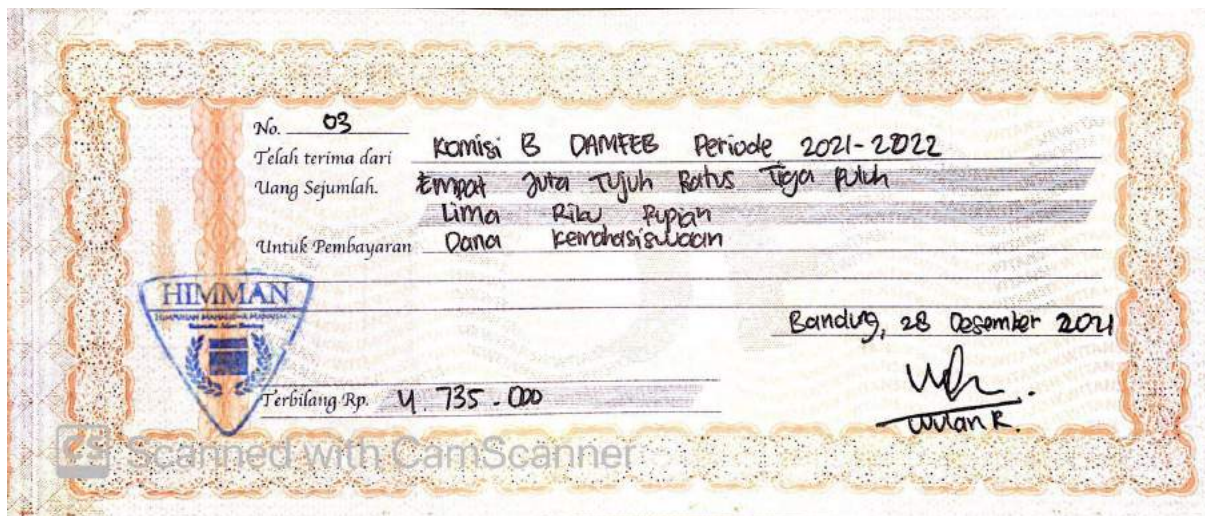 No. 03
Telah terima dari Komisi B DAMFEB Periode 2021-2022
Uang Sejumlah. Empat Juta Tujuh Ratus Tiga Puluh
Lima Ribu Rupiah
Untuk Pembayaran Dana Kemahasiswaan
HIMMAN
HIMPUNAN MAHASISWA MANAJEMEN
Bandung, 28 Desember 2021
Terbilang Rp. 4.735.000
Wulan R.
Scanned with CamScanner